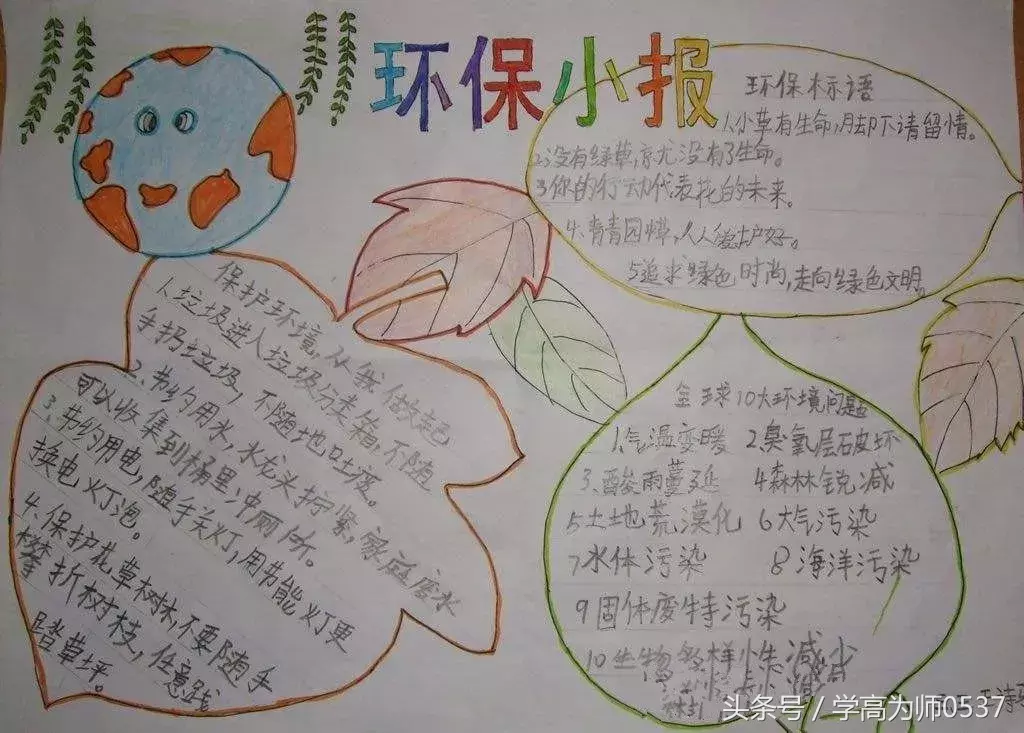 环保小报
环保标语
1.小草有生命,脚下请留情。
2.没有绿草,就没有了生命。
3你的行动代表花的未来。
4.青青园草,人人爱护好。
5追求绿色时尚,走向绿色文明。
保护环境,从我做起
1.垃圾进入垃圾分类箱,不随
手扔垃圾,不随地吐痰。
2.节约用水,水龙头拧紧,家庭废水
可以收集到桶里,冲厕所。
3.节约用电,随手关灯,用节能灯更
换电灯泡。
4.保护花草树林,不要随手
攀折树枝,任意践
踏草坪。
全球10大环境问题
1.气温变暖 2臭氧层破坏
3.酸雨蔓延 4森林锐减
5土地荒漠化 6大气污染
7水体污染 8海洋污染
9固体废特污染
10生物多样性减少
头条号/学高为师0537